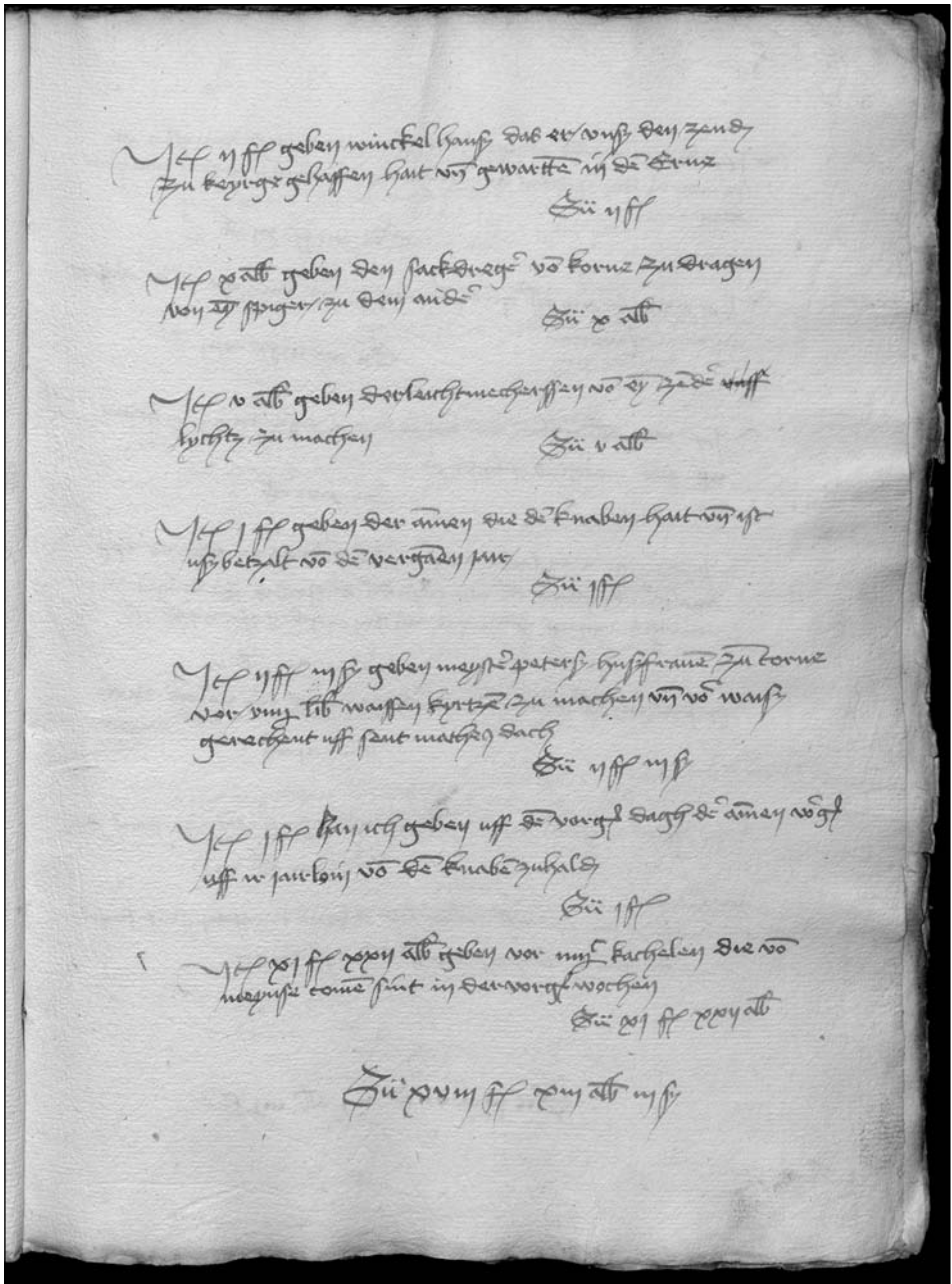 Ite ij fl geben winckel hansz das er vnsz den zend
zu keyrge gehaffen hait vn̄ gewartē in dē Erne
Sū ij fl
Ite x alb geben den sackdreger vō korne zu dragen
von ey spiger zu dem andē
Sū x alb
Ite v alb geben der leichtmecherssen vō ey zēdē vnff
lychtz zu machen
Sū v alb
Ite j fl geben der āmen die dē knaben hait vn̄ ist
usz betzalt vō dē vergāen jair
Sū j fl
Ite ij fl iij ß geben meyster petersz huszfrauē zū torne
vor viij lib waissen kyrtzē zu machen vn̄ vor waisz
gerechent uff sent matheus dach
Sū ij fl iij ß
Ite j fl han ich geben uff dē vorg dagh der āmen vorg
uff ir jairloin vō dē knabē zuhald
Sū j fl
Ite xj fl xxij alb geben vor kachelen die vō
mentze comē sint in der vorg wochen
Sū xj fl xxij alb
Sū xviij fl xiij alb iij ß